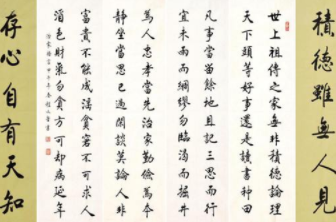 積德雖無人見
世上祖傳之家無非積德論理
天下頭等好事還是讀書種田
凡事當留餘地且記三思而行
宜未雨而綢繆勿臨渴而掘井
為人忠孝當先治家勤儉為
靜坐當思己過閑談莫論人非
富貴不能淫貧窮不可求人
酒色財氣勿貪方可卻病延年
存心自有天知